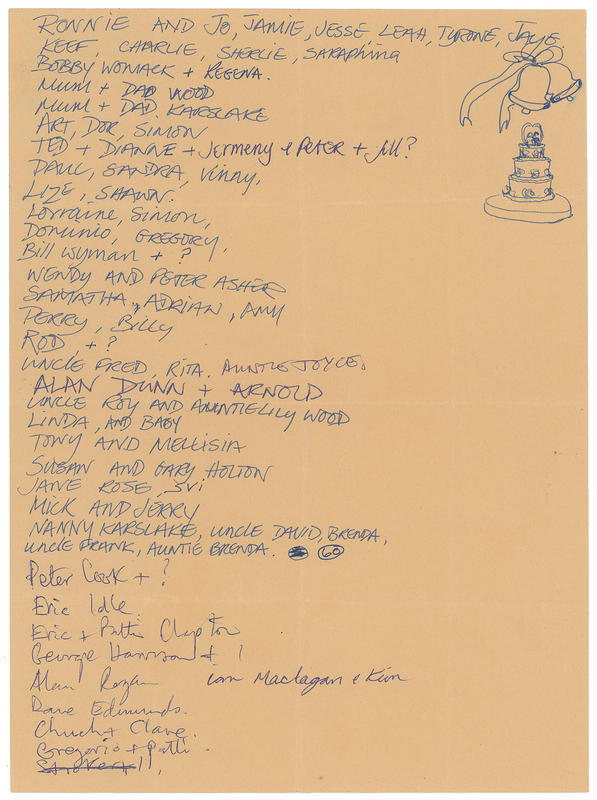 RONNIE AND JO, JAMIE, JESSE, LEAH, TYRONE, JAYE.
KEEF, CHARLIE, SHERLIE, SARAPHINA
BOBBY WOMACK + REGENA.
MUM + DAD WOOD
MUM + DAD. KARSLAKE
ART, DOR, SIMON
TED + DIANNE + Jermeny & PETER + Jill?
PAUL, SANDRA, Vinny,
LIZE, SHAWN.
Lorraine, Simon,
Dominio, GREGORY,
Bill wyman + ?
WENDY AND PETER ASHER
SAMATHA, ADRIAN, AMY
PERRY, BILLY
ROD, + ?
UNCLE FRED, RITA. AUNTIE JOYCE.
ALAN DUNN + ARNOLD
UNCLE ROY AND AUNTIE LILY WOOD
LINDA, AND BABY
TONY AND MELLISIA
SUSAN AND GARY HOLTON
JANE ROSE, SVI
MICK AND JERRY
NANNY KARSLAKE, UNCLE DAVID, BRENDA,
UNCLE FRANK, AUNTIE BRENDA. 60
Peter Cook + ?
Eric Idle.
Eric + Patti Clapton
George Harrison +
Alan Rogan Ian Maclagan & Kim
Dave Edmunds.
Chuch + Clare.
Gregorio + Patti.